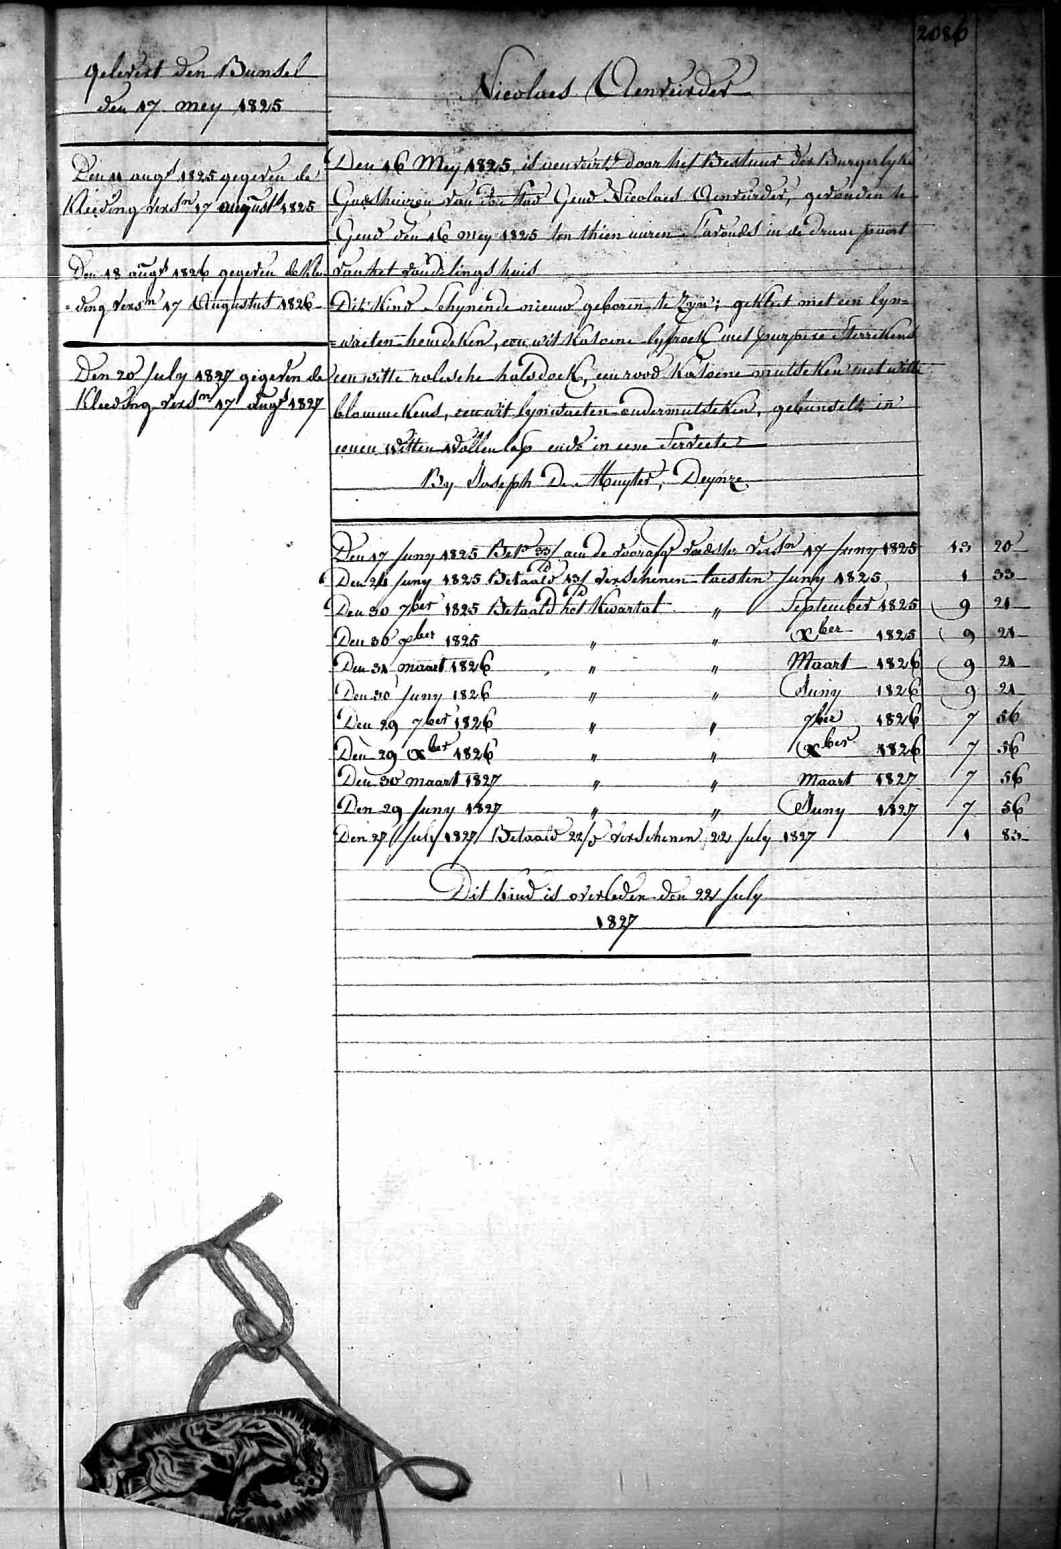 2086
gelevert den Bunsel
den 17 mey 1825
Den 11 augt 1825 gegeven de
Kleeding versn 17 august 1825
Den 18 augt 1826 gegeven de Klee
=ding versn 17 Augustus 1826
Den 20 July 1827 gegeven de
Kleeding versn 17 augt 1827
Nicolaes Aenveirder
Den 16 Mey 1825, is aenveirt door het Bestuur der Burgerlyke
Godshuizen van de Stad Gend Nicolaes Aenveirder, gevonden te
Gend den 16 mey 1825 ten thien uuren s'avonds in de draai poort
van het vondelings huis
Dit Kind schynende nieuw geboren te Zyn; gekleet met een lyn=
=waeten hemdeken, een wit Katoene lyfrock met purpere Sterrekens
een witte halsdoek, een rood Katoene mutseken met witte
blommekens, een wit lynwaeten ondermutseken, gebunselt in
eenen witten wollen lap ende in eene Serviette
By Joseph De Muyter, Deynze.
Den 17 Juny 1825 Bet. 33/ aen de voorafge voedster versn 17 Juny 1825 13 20
Den 24 Juny 1825 Betaald 13/ verschenen laesten Juny 1825 1 33
Den 30 7ber 1825 Betaald het Kwartal " September 1825 9 21
Den 30 xber 1825 " " Xber 1825 9 21
Den 31 maart 1826 " " Maart 1826 9 21
Den 30 Juny 1826 " " Juny 1826 9 21
Den 29 7ber 1826 " " 7ber 1826 7 56
Den 29 Xber 1826 " " Xber 1826 7 56
Den 30 maart 1827 " " Maart 1827 7 56
Den 29 Juny 1827 " " Juny 1827 7 56
Den 27 July 1827 Betaald 22/ verschenen 22 July 1827 1 83
Dit kind is overleden den 22 July
1827